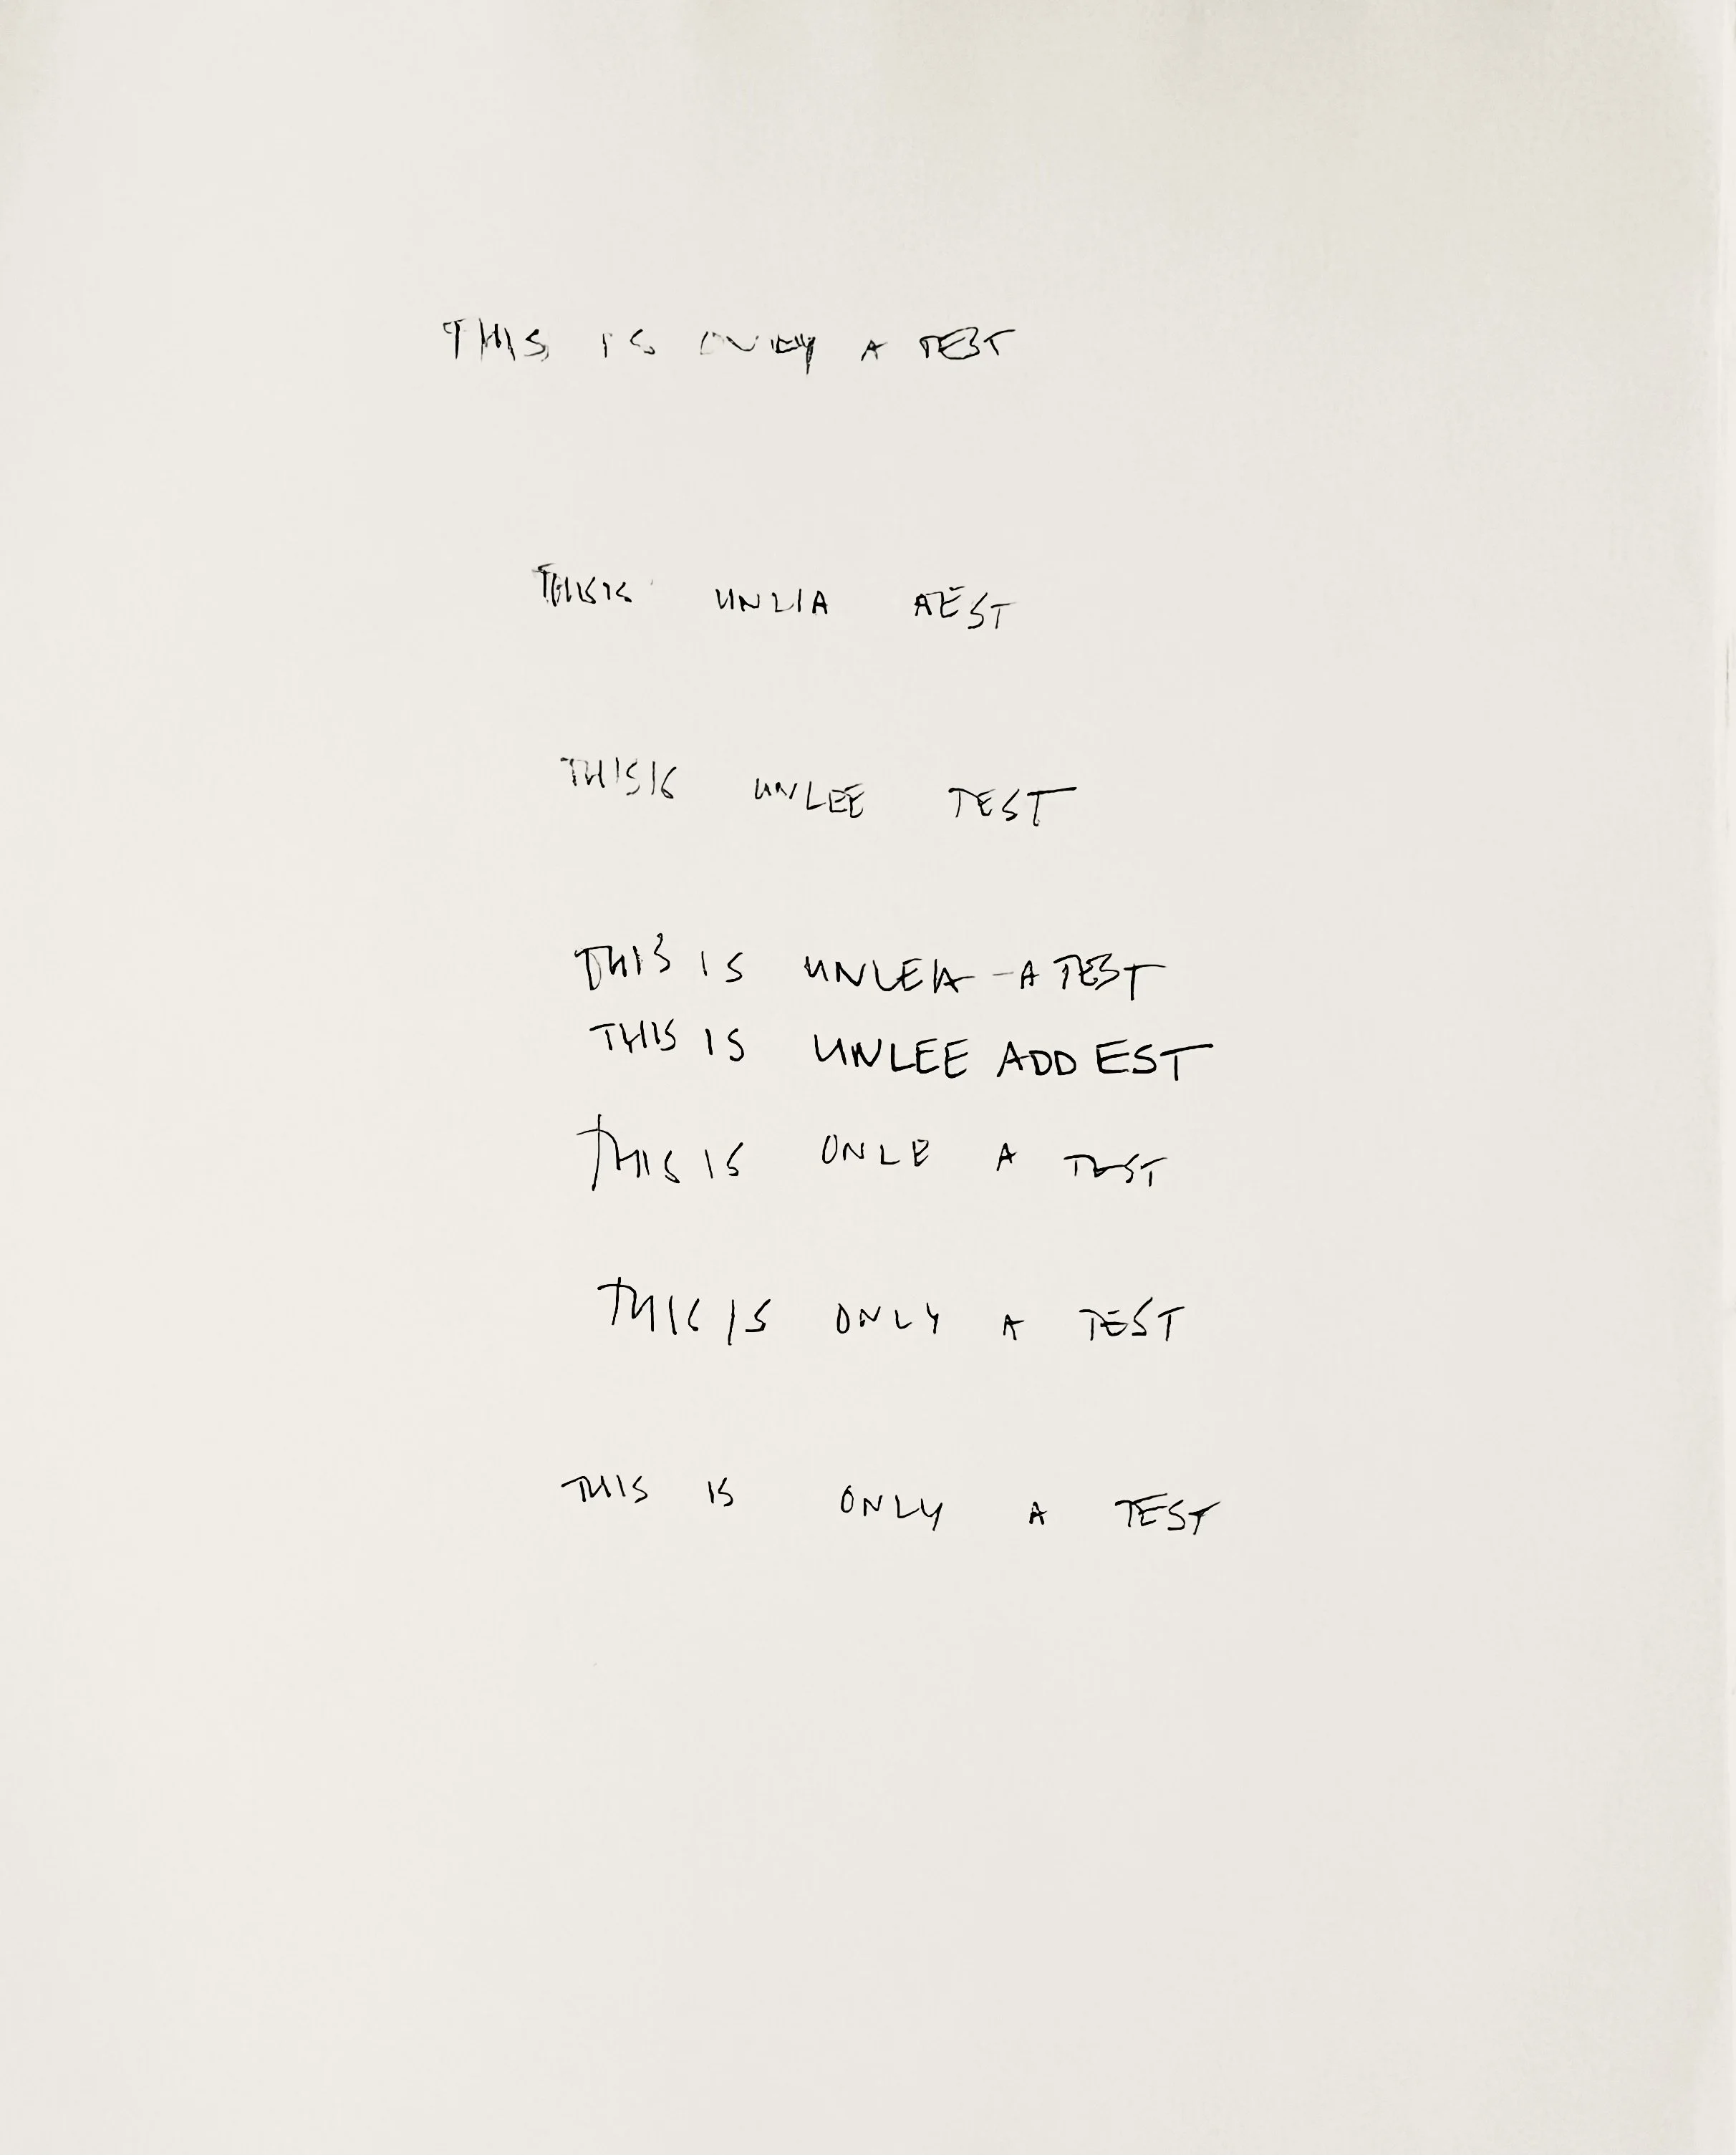 THIS IS ONLY A TEST
THISIS UNLIA AEST
THISIS UNLEE TEST
THIS IS UNLEIA - A TEST
THIS IS UNLEE ADD EST
THIS IS ONLE A TEST
THIS IS ONLY A TEST
THIS IS ONLY A TEST